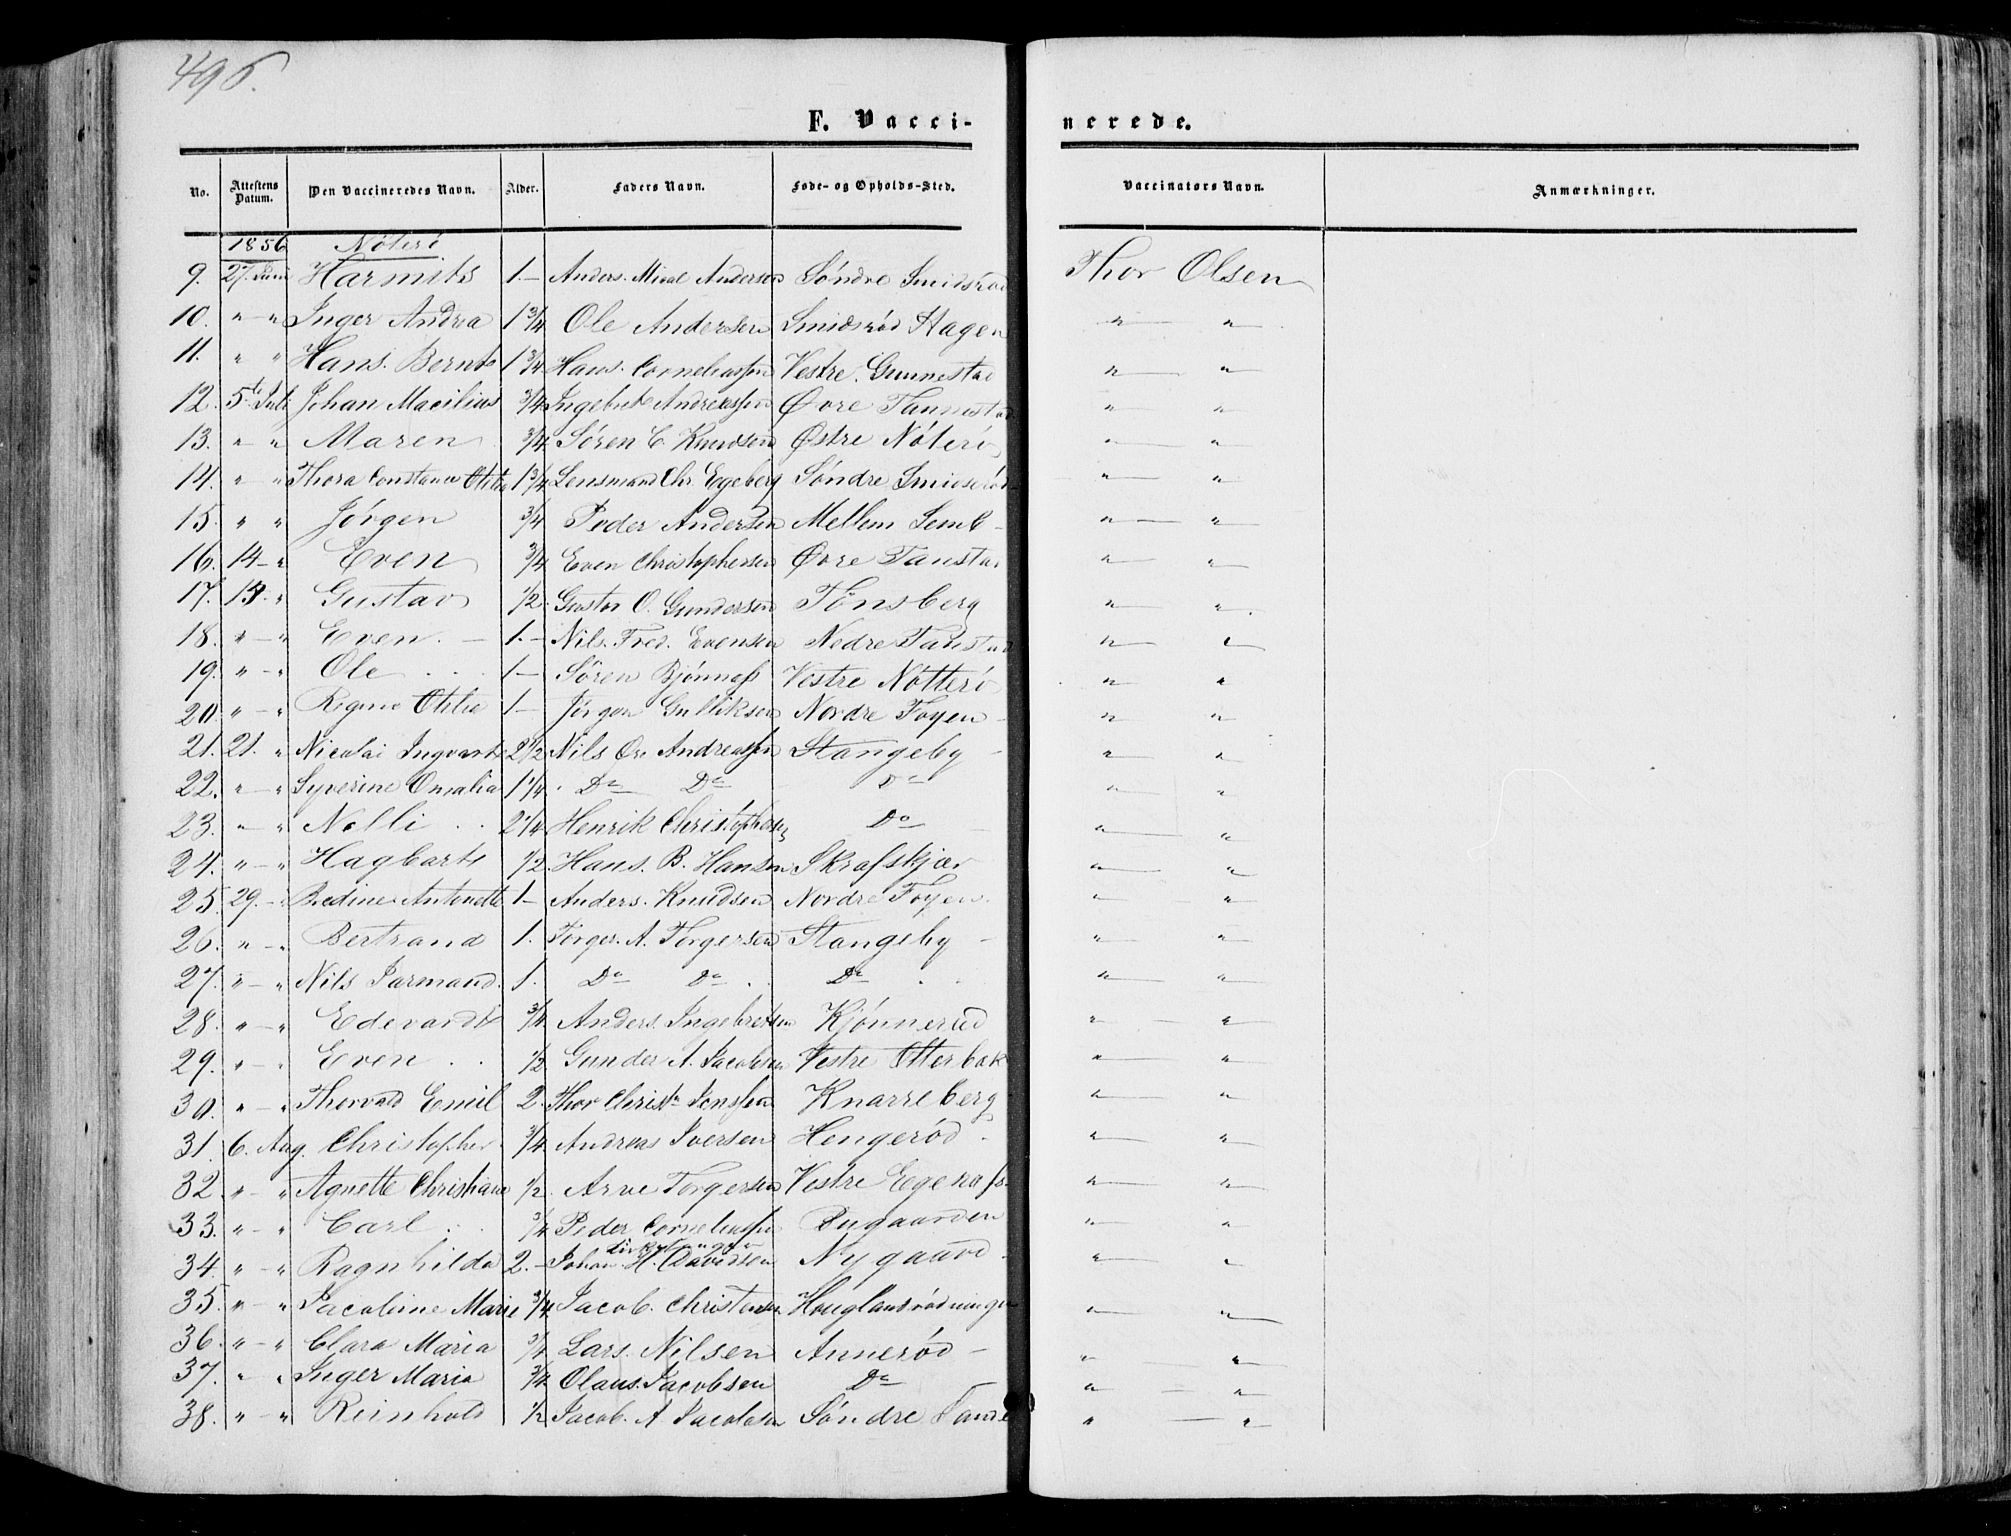 496.
F. Vacci- nerede.
No. Attestens Datum. Den Vaccineredes Navn. Alder. Faders Navn. Føde- og Opholds-Sted. Vaccinators Navn. Anmærkninger.
1856 Nöterö
9. 27. Juni Harnits 1.— Anders. Mical Andersen Söndre Smidsröd Thor Olsen
10. " " Inger Andrea 1 3/4 Ole Andersen Smidsröd Hagen " "
11. " " Hans. Bernt 1 3/4 Hans. Corneliussen Vestre. Gunnestad " "
12. 5te Juli Johan Macilius 3/4 Ingebret Andreassen Øvre Tannestad " "
13. " " Maren 3/4 Sören C. Knudsen Østre Nöterö " "
14. " " Thora Constance Otilia 1 3/4 Lensmand Chr. Egeberg Söndre Smidsröd " "
15. " " Jörgen 3/4 Peder Andersen Mellem Semb - " "
16. 14 - " Even 3/4 Even Christophersen Øvre Tanstad " "
17. 19. " Gustav 1/2. Gustav O. Gundersen Tönsberg " "
18. " - " Even. — 1.- Nils. Fred. Evensen Nedre Tanstad " "
19. " - " Ole 1- Sören Bjönness Vestre Nötterö " "
20. " - " Regine Otilia 1- Jörgen Gulliksen Nordre Foyen - " "
21. 21. " Nicolai Ingvart 2 1/2 Nils Chr. Andreassen Stangeby - " "
22. " - " Syverine Omalia 1 1/4 Do Do Do " "
23. " - " Nelli 2 1/4 Henrik Christophersen Do " "
24. " - " Hagbart 1/2 Hans. B. Hansen Skrafskjær " "
25. 29. - " Bedine Antonette 1- Anders. Knudsen Nordre Foyen. " "
26. " - " Bertrand 1. Torger. A. Torgersen Stangeby - " "
27. " - " Nils Jarmand. 1. Do Do Do " "
28. " - " Edevardt 3/4 Anders. Ingebretsen Kjönnerud " "
29. " - " Even 1/2 Gunder A. Jacobsen Vestre Otterbæk " "
30. " - " Thorvald Emil 2. Thor Christn Jenssen Knarreberg " "
31. 6. Aug. Christopher 3/4 Andreas Iversen Hengeröd - " "
32. " - " Agnette Christiane 1/2. Arve Torgersen Vestre Egenæss. " "
33. " - " Carl 3/4 Peder Corneliussen Bugaarden " "
34. " - " Ragnhilda 2.- Johan H. Davidsen Nygaard - " "
35. " - " Jacobine Marie 3/4 Jacob. Christensen Houglandrödningen " "
36. " - " Clara Maria 3/4 Lars. Nilsen Anneröd - " "
37. " " Inger Maria 3/4 Olaus. Jacobsen Do " "
38. " - " Reinhold 1/2 Jacob. A Jacobsen Söndre Lande " "